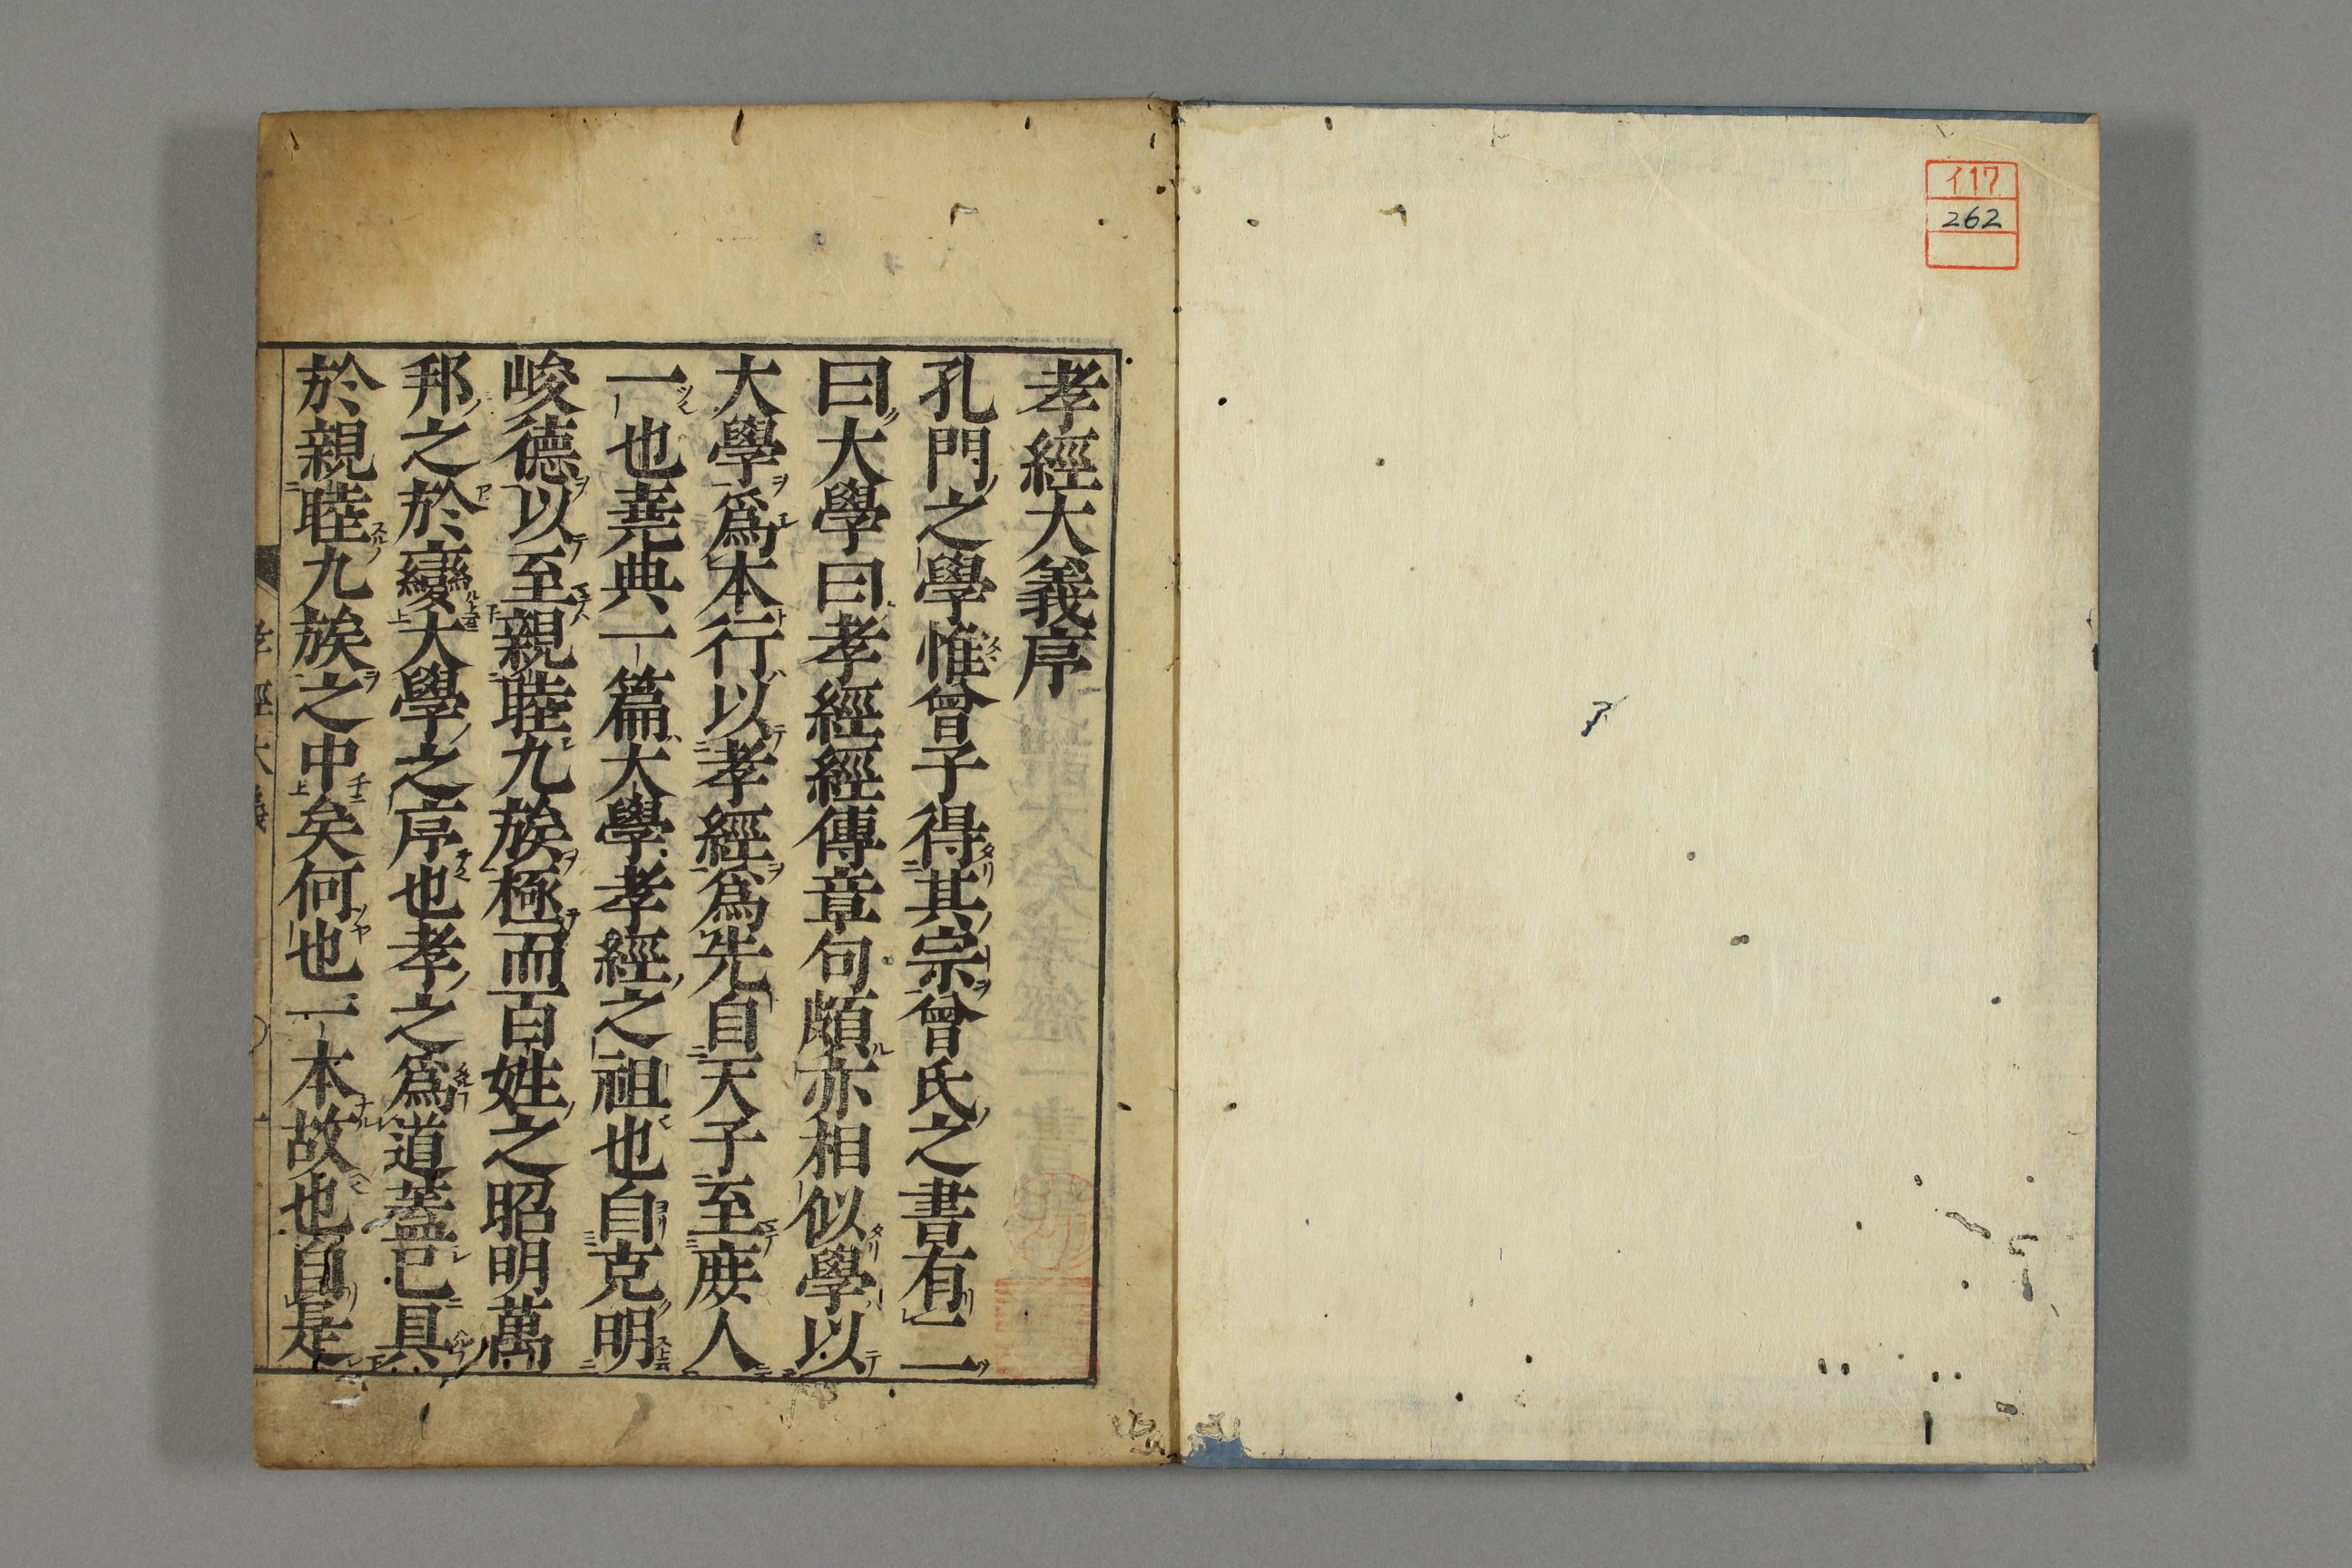 イ17
262
孝經大義序
孔門之學惟曾子得其宗曾氏之書有二
曰大學曰孝經經傳章句頗亦相似學以
大學爲本行以孝經爲先自天子至庶人
一也堯典一篇大學孝經之祖也自克明
峻德以至親睦九族極而百姓之昭明萬
邦之於變大學之序也孝之爲道蓋已具
於親睦九族之中矣何也一本故也自是
孝經大義